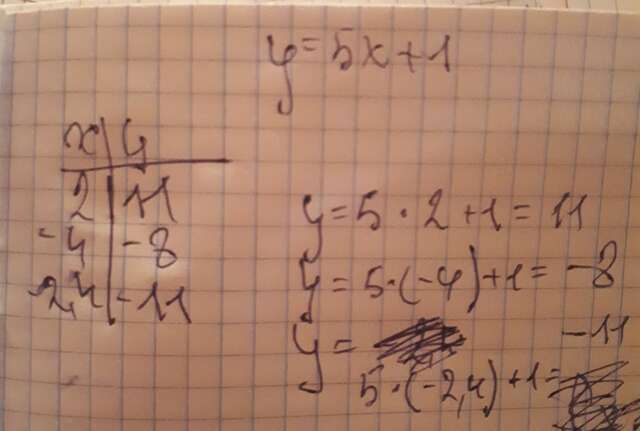 y = 5x + 1
x | y
2 | 11
-4 | -8
-2,4 | -11
y = 5 · 2 + 1 = 11
y = 5 · (-4) + 1 = -8
y =
5 · (-2,4) + 1 = -11